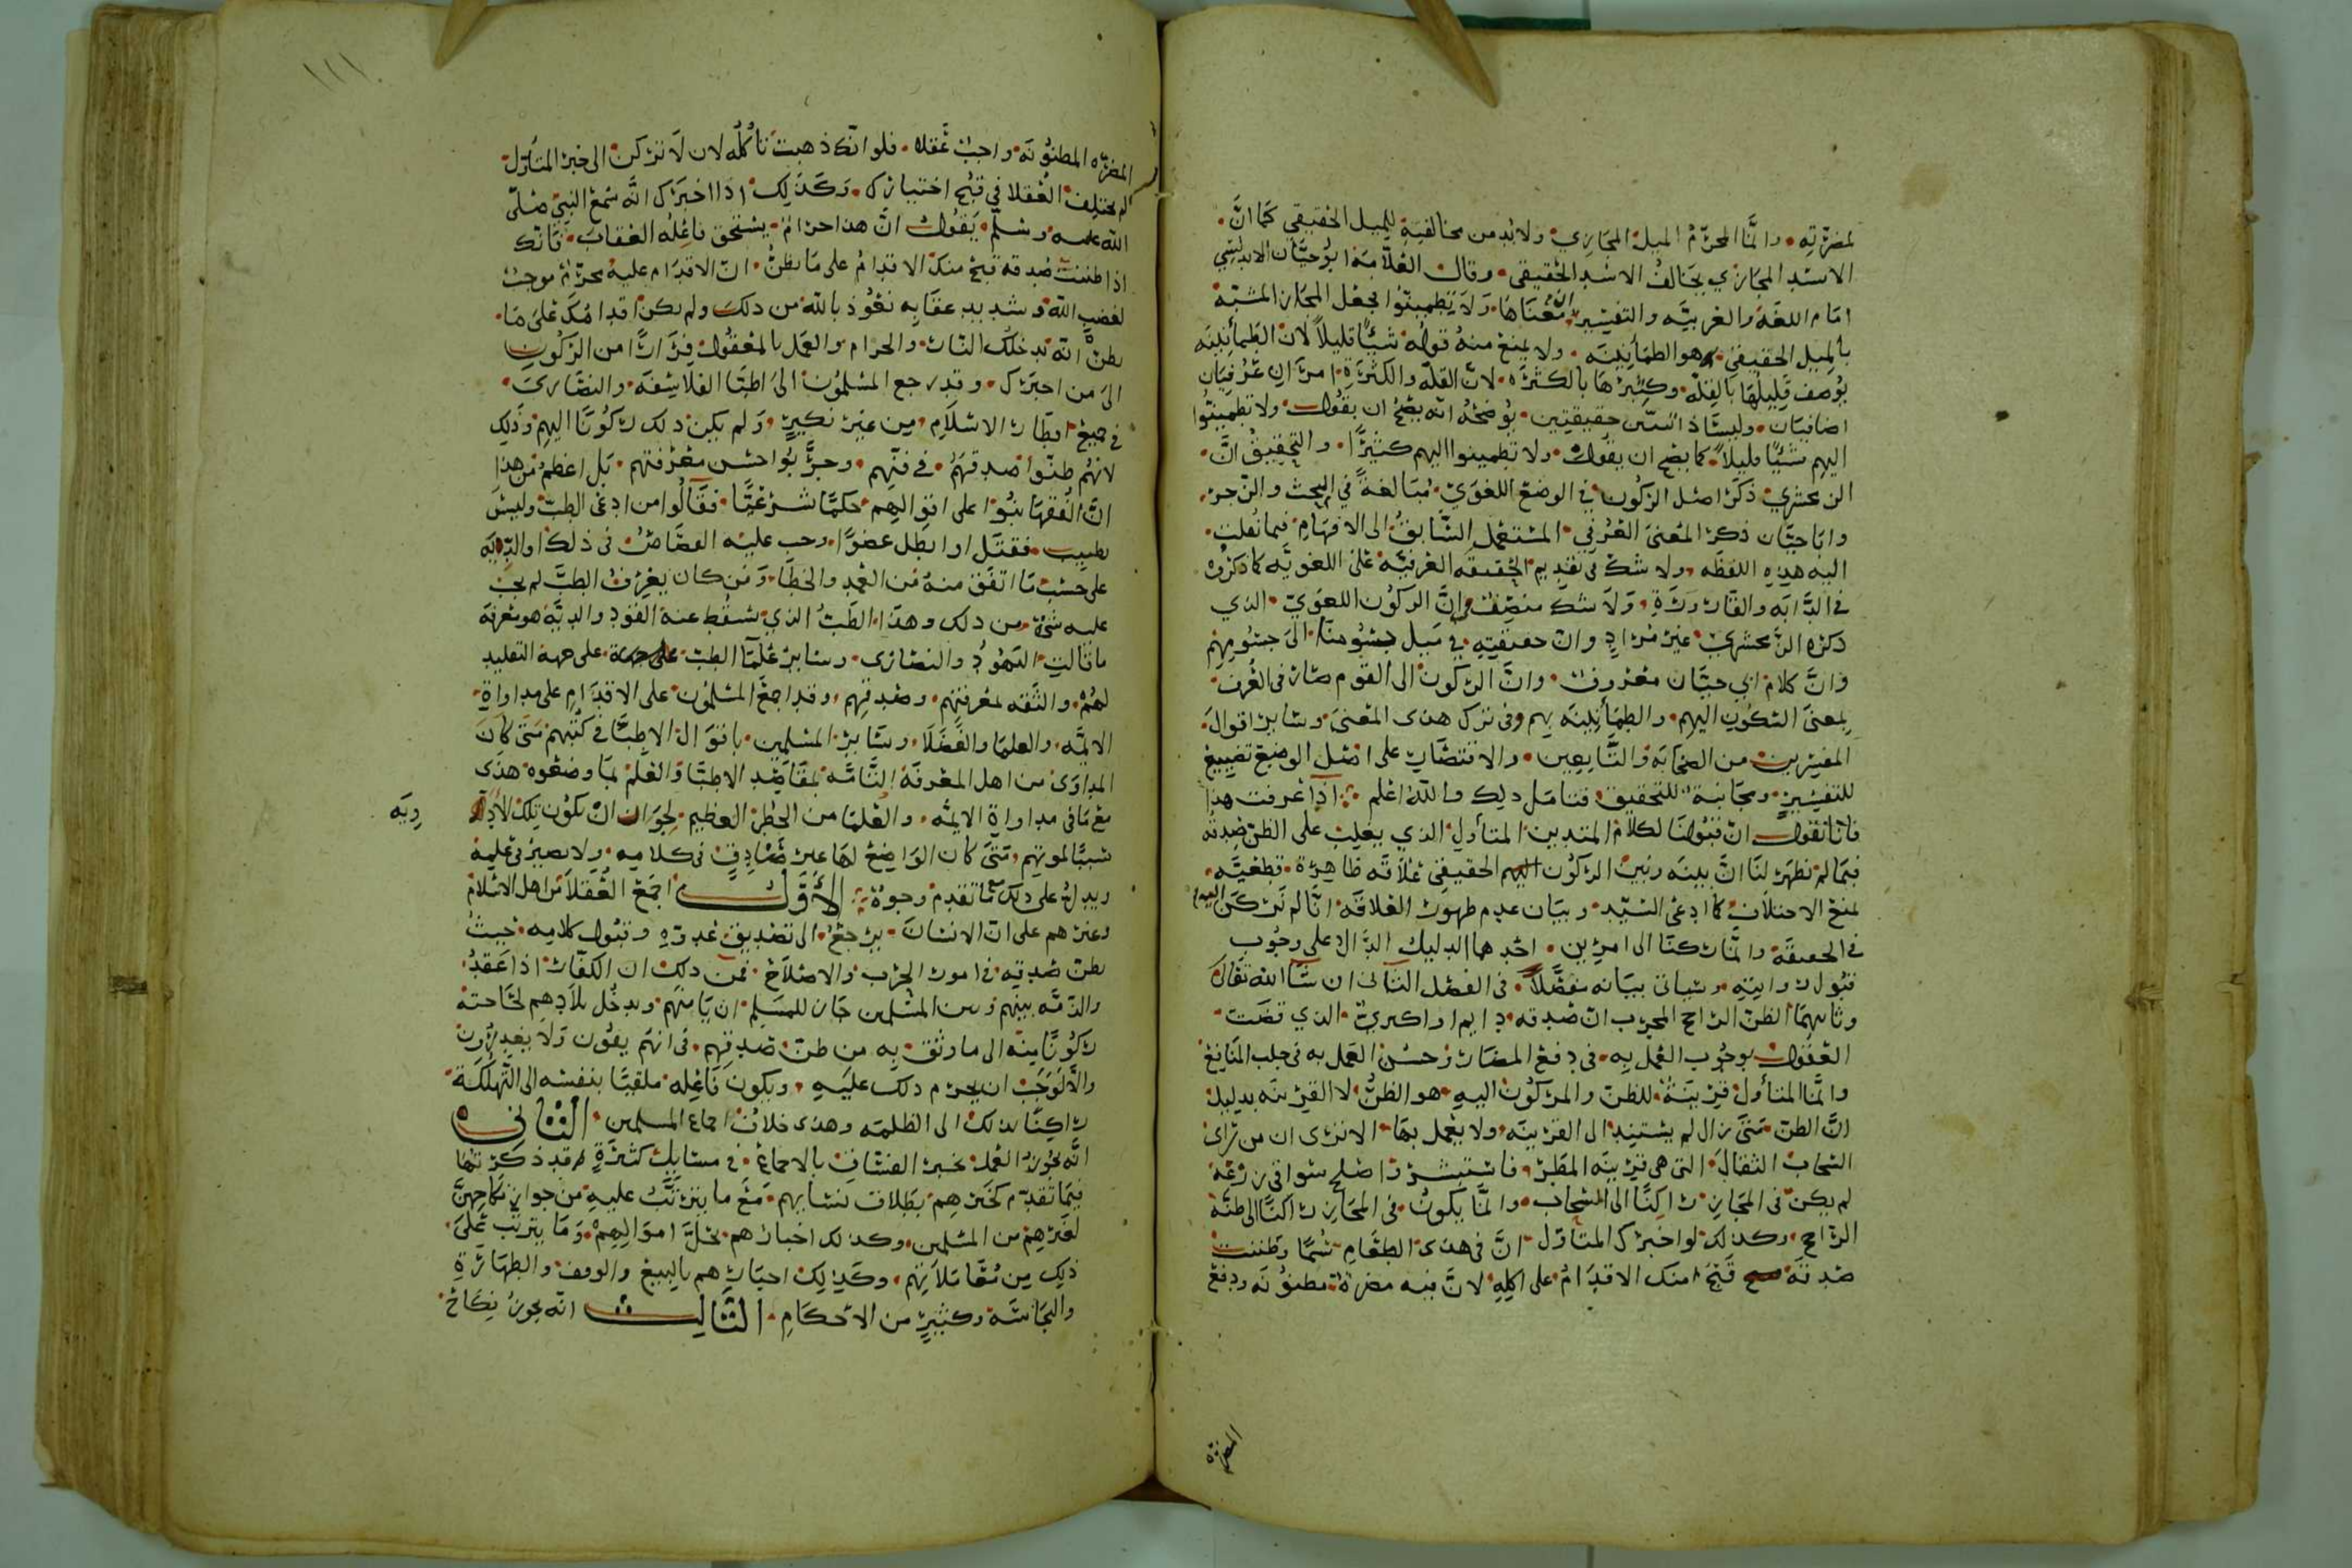 لمضرّته، وانّما المحرّم الميل المجازي ولابد من مخالفته للميل الحقيقي كما انّ
الاسد المجازي يخالف الاسد الحقيقي، وقال العلّامة ابو حيّان الاندلسي
امام اللغة والعربيّه والتفسير انّ معناها ولا تطمينّوا فجعل المجاز المشبّه
بالميل الحقيقي هو الطمأنينه، ولا يمنع منه قوله شيًا قليلًا لان الطمأنينه
يوصف قليلها بالقلّه وكثيرها بالكثره، لانّ القلّه والكثرة امران عرفيان
اضافيان، وليسا حقيقتين، يوضحه انّه يصحّ ان يقول، ولا تطمينّوا
اليهم شيًا قليلًا كما يصح ان يقول، ولا تطمينوا اليهم كثيرًا، والتحقيق انّ
الزمخشري ذكر اصل الركون في الوضع اللغوي، مبالغة في البحث والزجر،
وابا حيّان ذكر المعنى العرفي المستعمل السّابق الى الافهام فيما نقلت
اليه هذه اللفظه، ولا شكّ في تقديم الحقيقه العرفيّه على اللغويّه كما ذكروه
في الدّابه والقارورة، ولا شك منصف انّ الركون اللغوي، الذي
ذكره الزمخشري غير مراد وان حقيقته في ميل جنوبنا الى جنوبهم
وانّ كلام ابي حيّان معروف، وانّ الركون الى القوم صار في العرف
بمعنى السكون اليهم، والطمأنينه بهم وفي ترك هذى المعنى وساير اقوال
المفسرين من الصحابه والتّابعين، والاقتصار على اصل الوضع تضييع
للتفسير، ومجانبة للتحقيق، فتامل ذلك والله اعلم، اذا عرفت هذا
فانّا نقول انّ قبولنا لكلام المتدين المتأول الذي يغلب على الظن صدقه
فيما لم نظهر لنا انّ بينه وبين الركون اليهم الحقيقي علاقه ظاهرة، قطعيّه
لمنع الاختلاف كما ادعى السّيد، وبيان عدم ظهور العلاقه انّا لم نركن اليهم
في الحقيقه وانّما ركنّا الى امرين، احدهما الدليل الدّال على وجوب
قبول روايته، وسياتي بيانه مفصّلًا، في الفصل الثاني ان شا الله تعالى
وثانيهما الظن الراجح المجرب انّ صدقه، دايم او اكبري الذي قضت
العقول بوجوب العمل به، في دفع المضار وحسن العمل به في جلب المنافع
وانّما المتأول قرينة للظن والمركون اليه، هو الظنّ لا القرينه بدليل
انّ الظن متى زال لم يستند الى القرينه، ولا يعمل بها، الا ترى ان من راى
السحاب الثقال التي هي قرينه المطر، فاستبشر واصلح سواقي زرعه
لم يكن في المجاز راكنًا الى السحاب، وانّما يكون في المجاز راكنًا الى ظنّه
الراجح، وكذلك لو اخبرك المتاول انّ في هذى الطعام سُمًّا وظننت
صدقه قبح منك الاقدام على اكله لانّ فيه مضرة مظنونه ودفع
المضرّه
١١١
المضرّه المظنونه واجب عقلا، فلو انّك ذهبت تأكله لان لا تركن الى خبر المتأول
لم يختلف العقلا في قبح اختيارك، وكذلك اذا اخبرك انّه سمع النبي صلّى
الله عليه وسلّم يقول انّ هذا حرام، يستحق فاعله العقاب، فانّك
اذا ظننت صدقه قبح منك الاقدام على ما تظنّ، انّ الاقدام عليه محرّم موجب
لغضب الله وشديد عقابه نعوذ بالله من ذلك ولم يكن اقدامك على ما
تظنّ انّه يدخلك النار، والحرام والعمل بالمعقول فرارًا من الركون
الى من اخبرك، وقد رجع المسلمون الى اطبّا الفلاسفه، والنصارى
في جميع اقطار الاسلام، من غير نكير، ولم يكن ذلك ركونًا اليهم وذلك
لانهم ظنّوا صدقهم، في فنّهم، وجرّبوا حسن معرفتهم، بل اعظم من هذا
انّ الفقها بنوا على اقوالهم حكمًا شرعيًّا، فقالوا من ادعى الطب، وليس
بطبيب، فقتل او ابطل عضوًا، وجب عليه القصاص في ذلك او الدّيه
على حسب ما اتفق منه من العمد والخطا، ومن كان يعرف الطبّ لم يجب
عليه شيء من ذلك وهذا الطّب الذي سقط عنه القود والديّه هو معرفة
ما قالت اليهود والنصارى، وساير علما الطب على جهة التقليد
لهم، والثقه لمعرفتهم، وصدقهم، وقد اجمع المسلمون على الاقدام على مداواة
الايمّه، والعلما والفضلا، وسّاير المسلمين، باقوال الاطبّا في كتبهم متى كان
المداوى من اهل المعرفه التّامّه بمقاصد الاطبّا والعلم بما وضعوه هذى
مع ما في مداواة الايمّه، والعلما من الخطر العظيم، لجواز ان تكون تلك الأدويه
ويه
سببًا لموتهم، متى كان الواضع لها غير صادق في كلامه، ولا بصير في علمه
ويدل على ذلك مما تقدم وجوه، الأوّل اجمع العقلا من اهل الاسلام
وغيرهم على انّ الانسان، يرجع، الى تصديق عدوّه وقبول كلامه، حيث
يظن صدقه في امور الحرب والاصلاح، فمن ذلك ان الكفّار اذا عقد
والذمّه بينهم وبين المسلمين جاز للمسلم، ان يامنهم، ويدخل بلادهم لحاجته
ركونًا منه الى ما وثق به من ظنّ صدقهم، في انهم يفون ولا يغدرون
والّا لوجب ان يحرم ذلك عليه، ويكون فاعله ملقيًا بنفسه الى التّهلكه
راكنًا بذلك الى الظلمه وهذى خلاف اجماع المسلمين، الثّاني
انّه يجوز العمل بخبر الفسّاق بالاجماع، في مسايل كثيرة، وقد ذكرتها
فيما تقدم كخبرهم بطلاق نسايهم، مع ما يترتّب عليه من جواز نكاحهنّ
لغيرهم من المسلمين، وكذلك اخبارهم بحلّ اموالهم، وما يترتب على
ذلك من معاملاتهم، وكذلك اخبارهم بالبيع والوقف، والطهارة
والنجاسة وكثير من الاحكام، الثّالث انّه يجوز نكاح